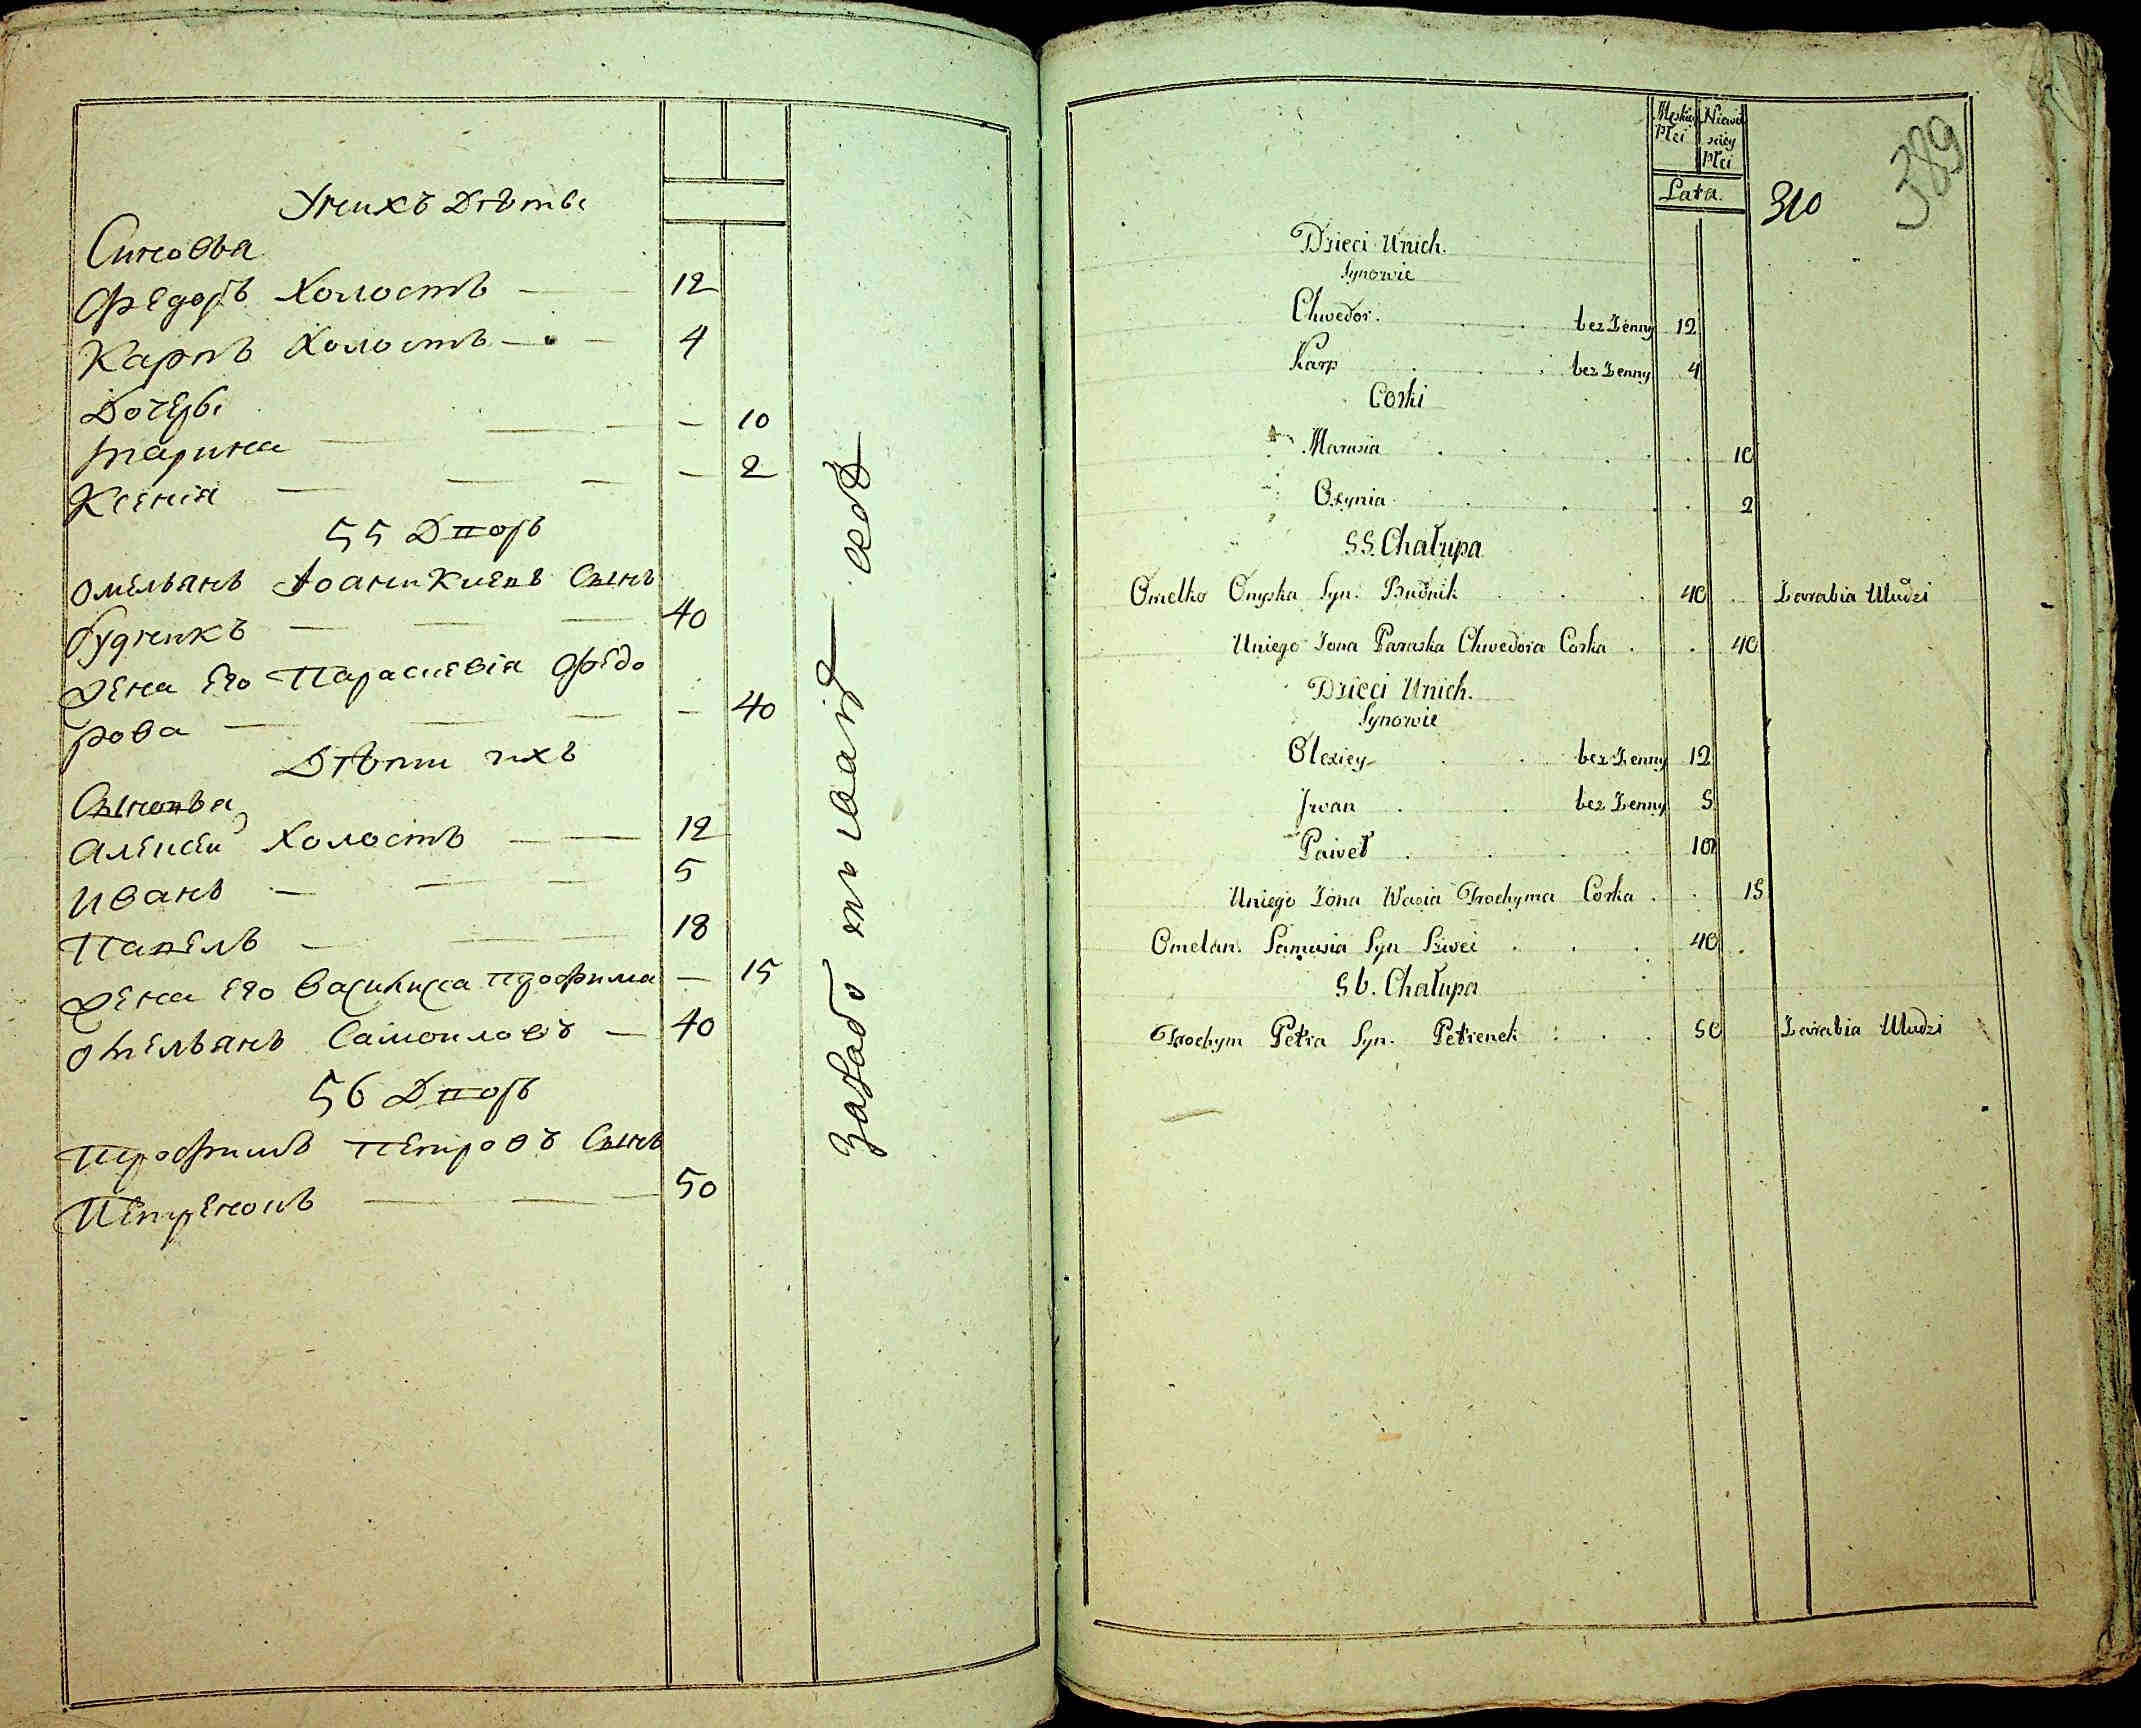 Унихъ Дѣти
Синовья
Федоръ Холостъ — 12
Карпъ Холостъ — 4
Дочери
Марина — 10
Ксенія — 2
55 Дворъ
Омельянъ Іоаникиевъ Сынъ
Будникъ — 40
Жена Его Параскевія Федо
рова — 40
Дѣти ихъ
Сыновья
Алексей Холостъ — 12
Иванъ — 5
Павелъ — 18
Жена Его Василиса Трофима — 15
Омельянъ Самойловъ — 40
56 Дворъ
Трофимъ Петровъ Сынъ
Петренокъ — 50
Męskiey Płci
Niewieściey Płci
Lata.
310
389
Dzieci Unich.
Synowie
Chwedor. bez Żenny 12
Karp bez Żenny 4
Corki
Marusia 10
Oxynia 2
55. Chałupa
Omelko Onyska Syn. Budnik 40 Zarabia Mudzi
Uniego Żona Paraska Chwedora Corka 40
Dzieci Unich.
Synowie
Olexiey bez Żenny 12
Jwan bez Żenny 5
Paweł 18
Uniego Żona Wasia Trochyma Corka 15
Omelan. Samusia Syn Szwei 40
56. Chałupa
Trochym Petra Syn. Petrenek 50 Zarabia Mudzi